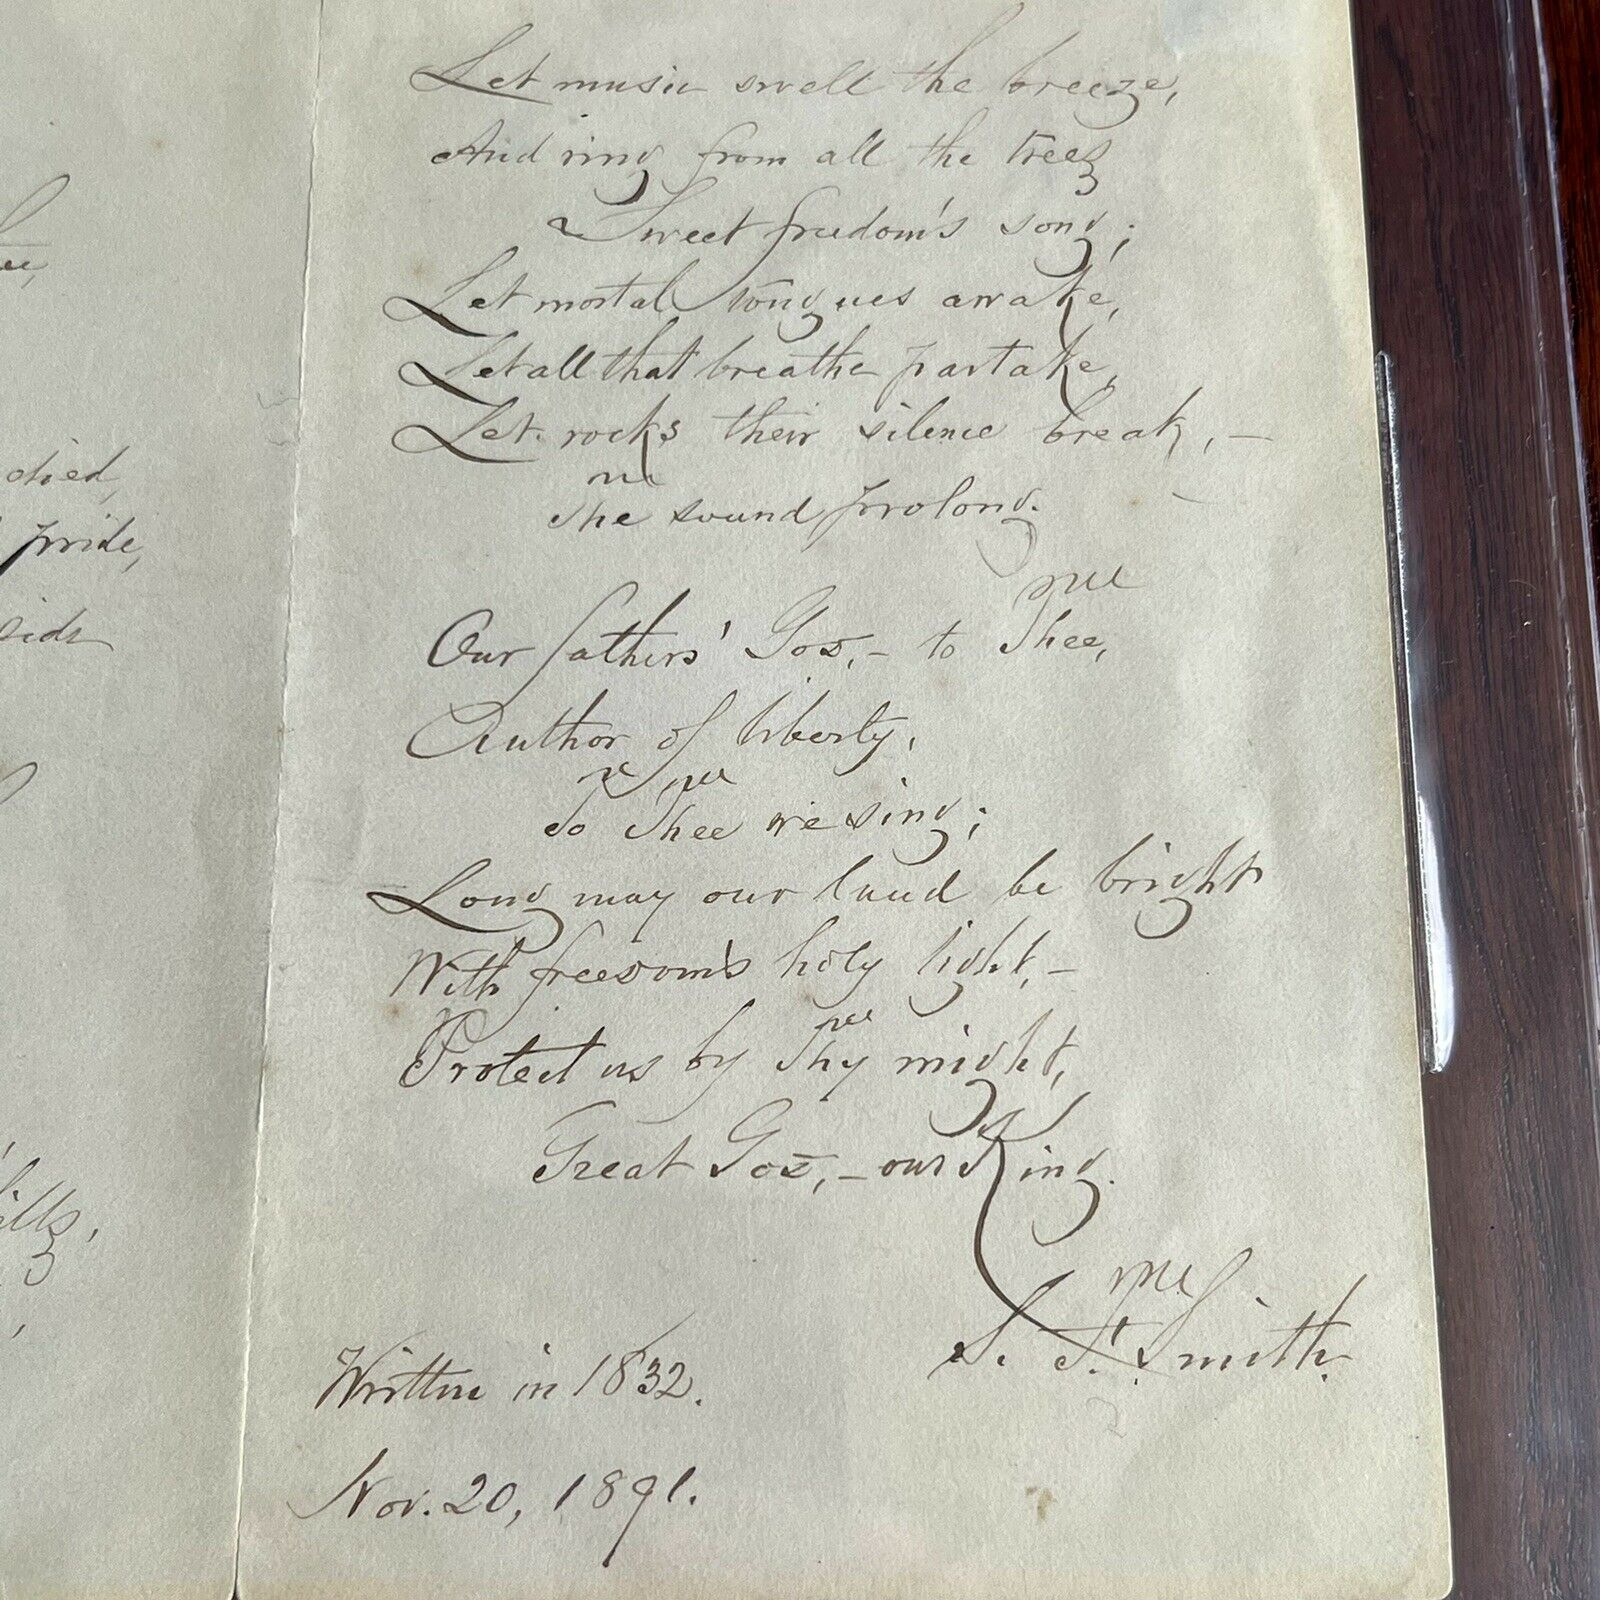 died,
pride,
side
ills,
Let music swell the breeze,
And ring from all the trees
Sweet freedom's song;
Let mortal tongues awake,
Let all that breathe partake,
Let rocks their silence break, –
The sound prolong.
Our fathers' God, – to Thee,
Author of liberty,
To Thee we sing;
Long may our land be bright
With freedom's holy light, –
Protect us by Thy might,
Great God, – our King.
S. F. Smith.
Written in 1832.
Nov. 20, 1891.